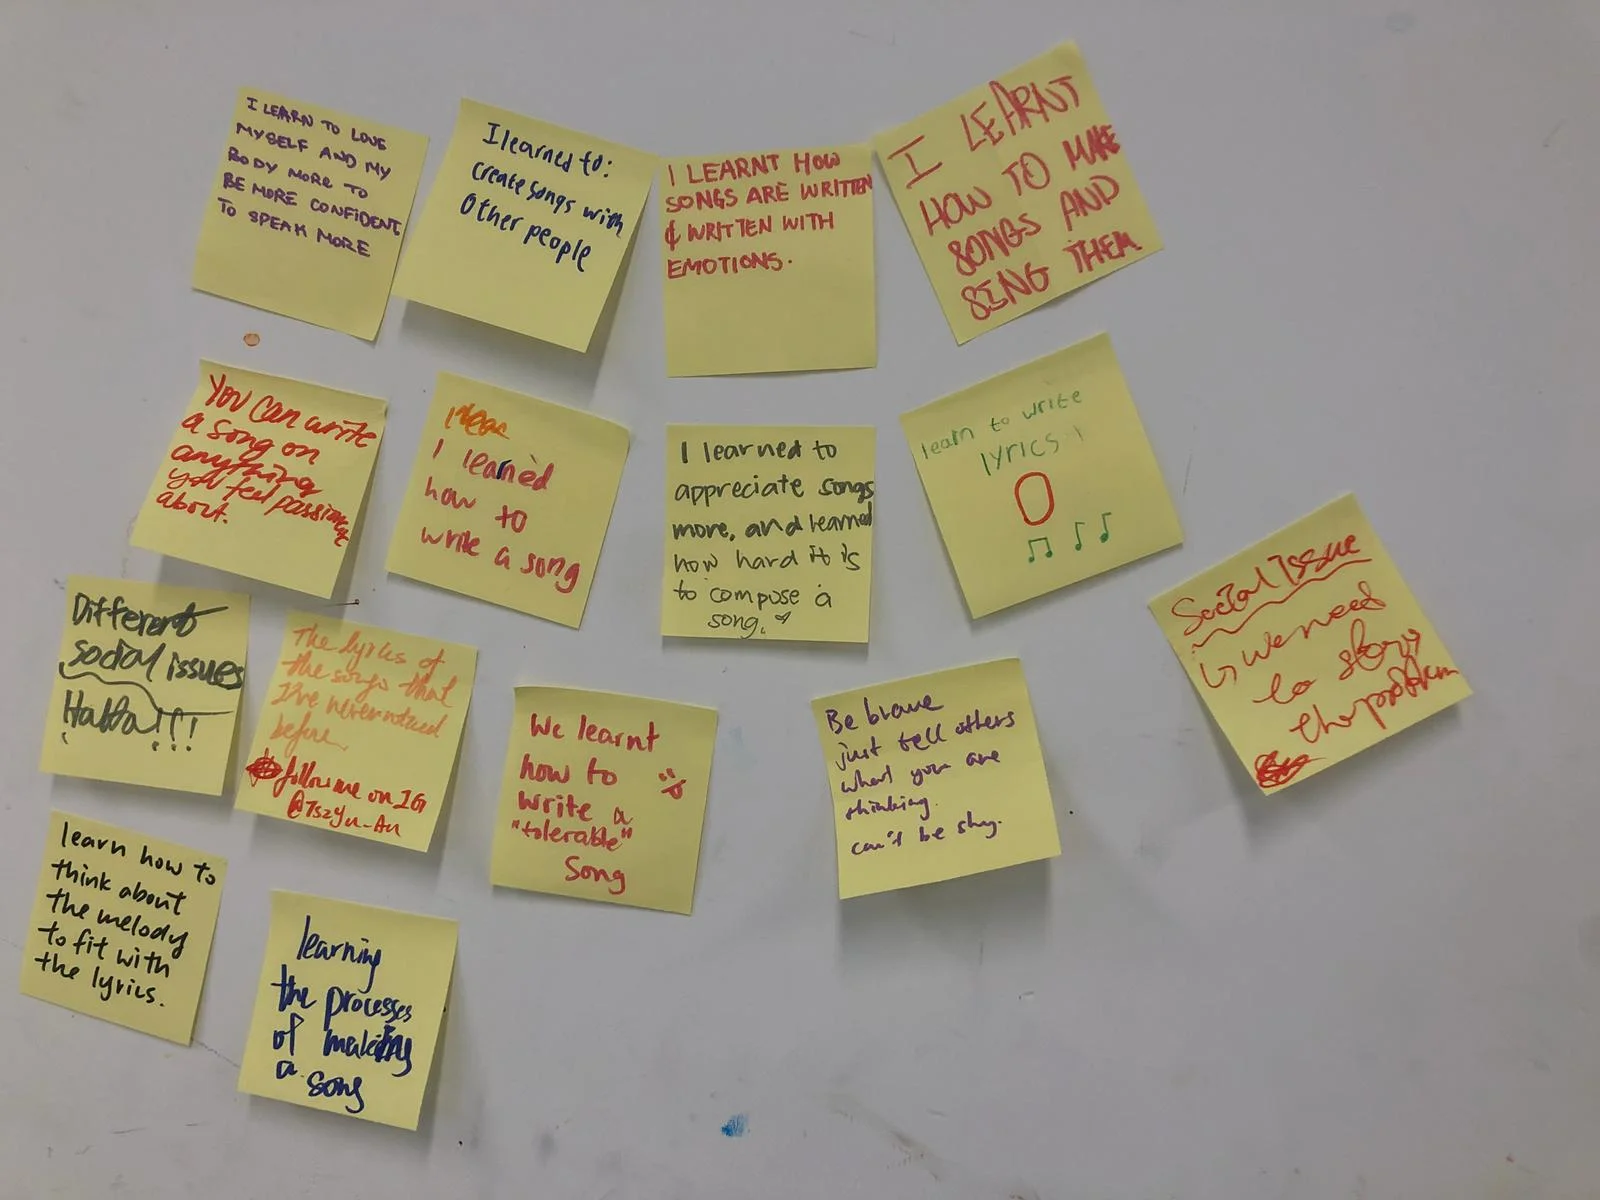 I LEARN TO LOVE
MYSELF AND MY
BODY MORE TO
BE MORE CONFIDENT
TO SPEAK MORE
I learned to:
create songs with
Other people
I LEARNT HOW
SONGS ARE WRITTEN
& WRITTEN WITH
EMOTIONS.
I LEARNT
HOW TO MAKE
SONGS AND
SING THEM
You can write
a song on
anything
you feel passionate
about.
I learned
how to
write a song
I learned to
appreciate songs
more, and learned
how hard it is
to compose a
song.
learn to write
lyrics
Social Issue
we need
to
the problem
Different
social issues
Hahha!!!
The lyrics of
the songs that
I've never noticed
before.
follow me on IG
@TszYu_Au
We learnt
how to
write a
"tolerable"
Song
Be brave
just tell others
what you are
thinking.
can't be shy.
learn how to
think about
the melody
to fit with
the lyrics.
learning
the processes
of making
a song